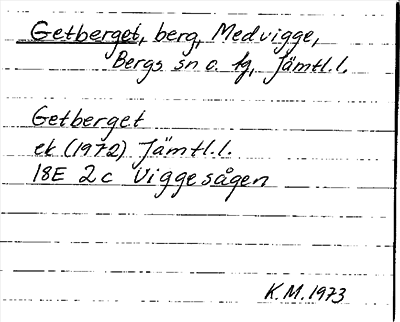 Getberget, berg, Medvigge,
Bergs sn o. tg, Jämtl.l.
Getberget
ek (1972) Jämtl.l.
18E 2c Viggesågen
K.M. 1973